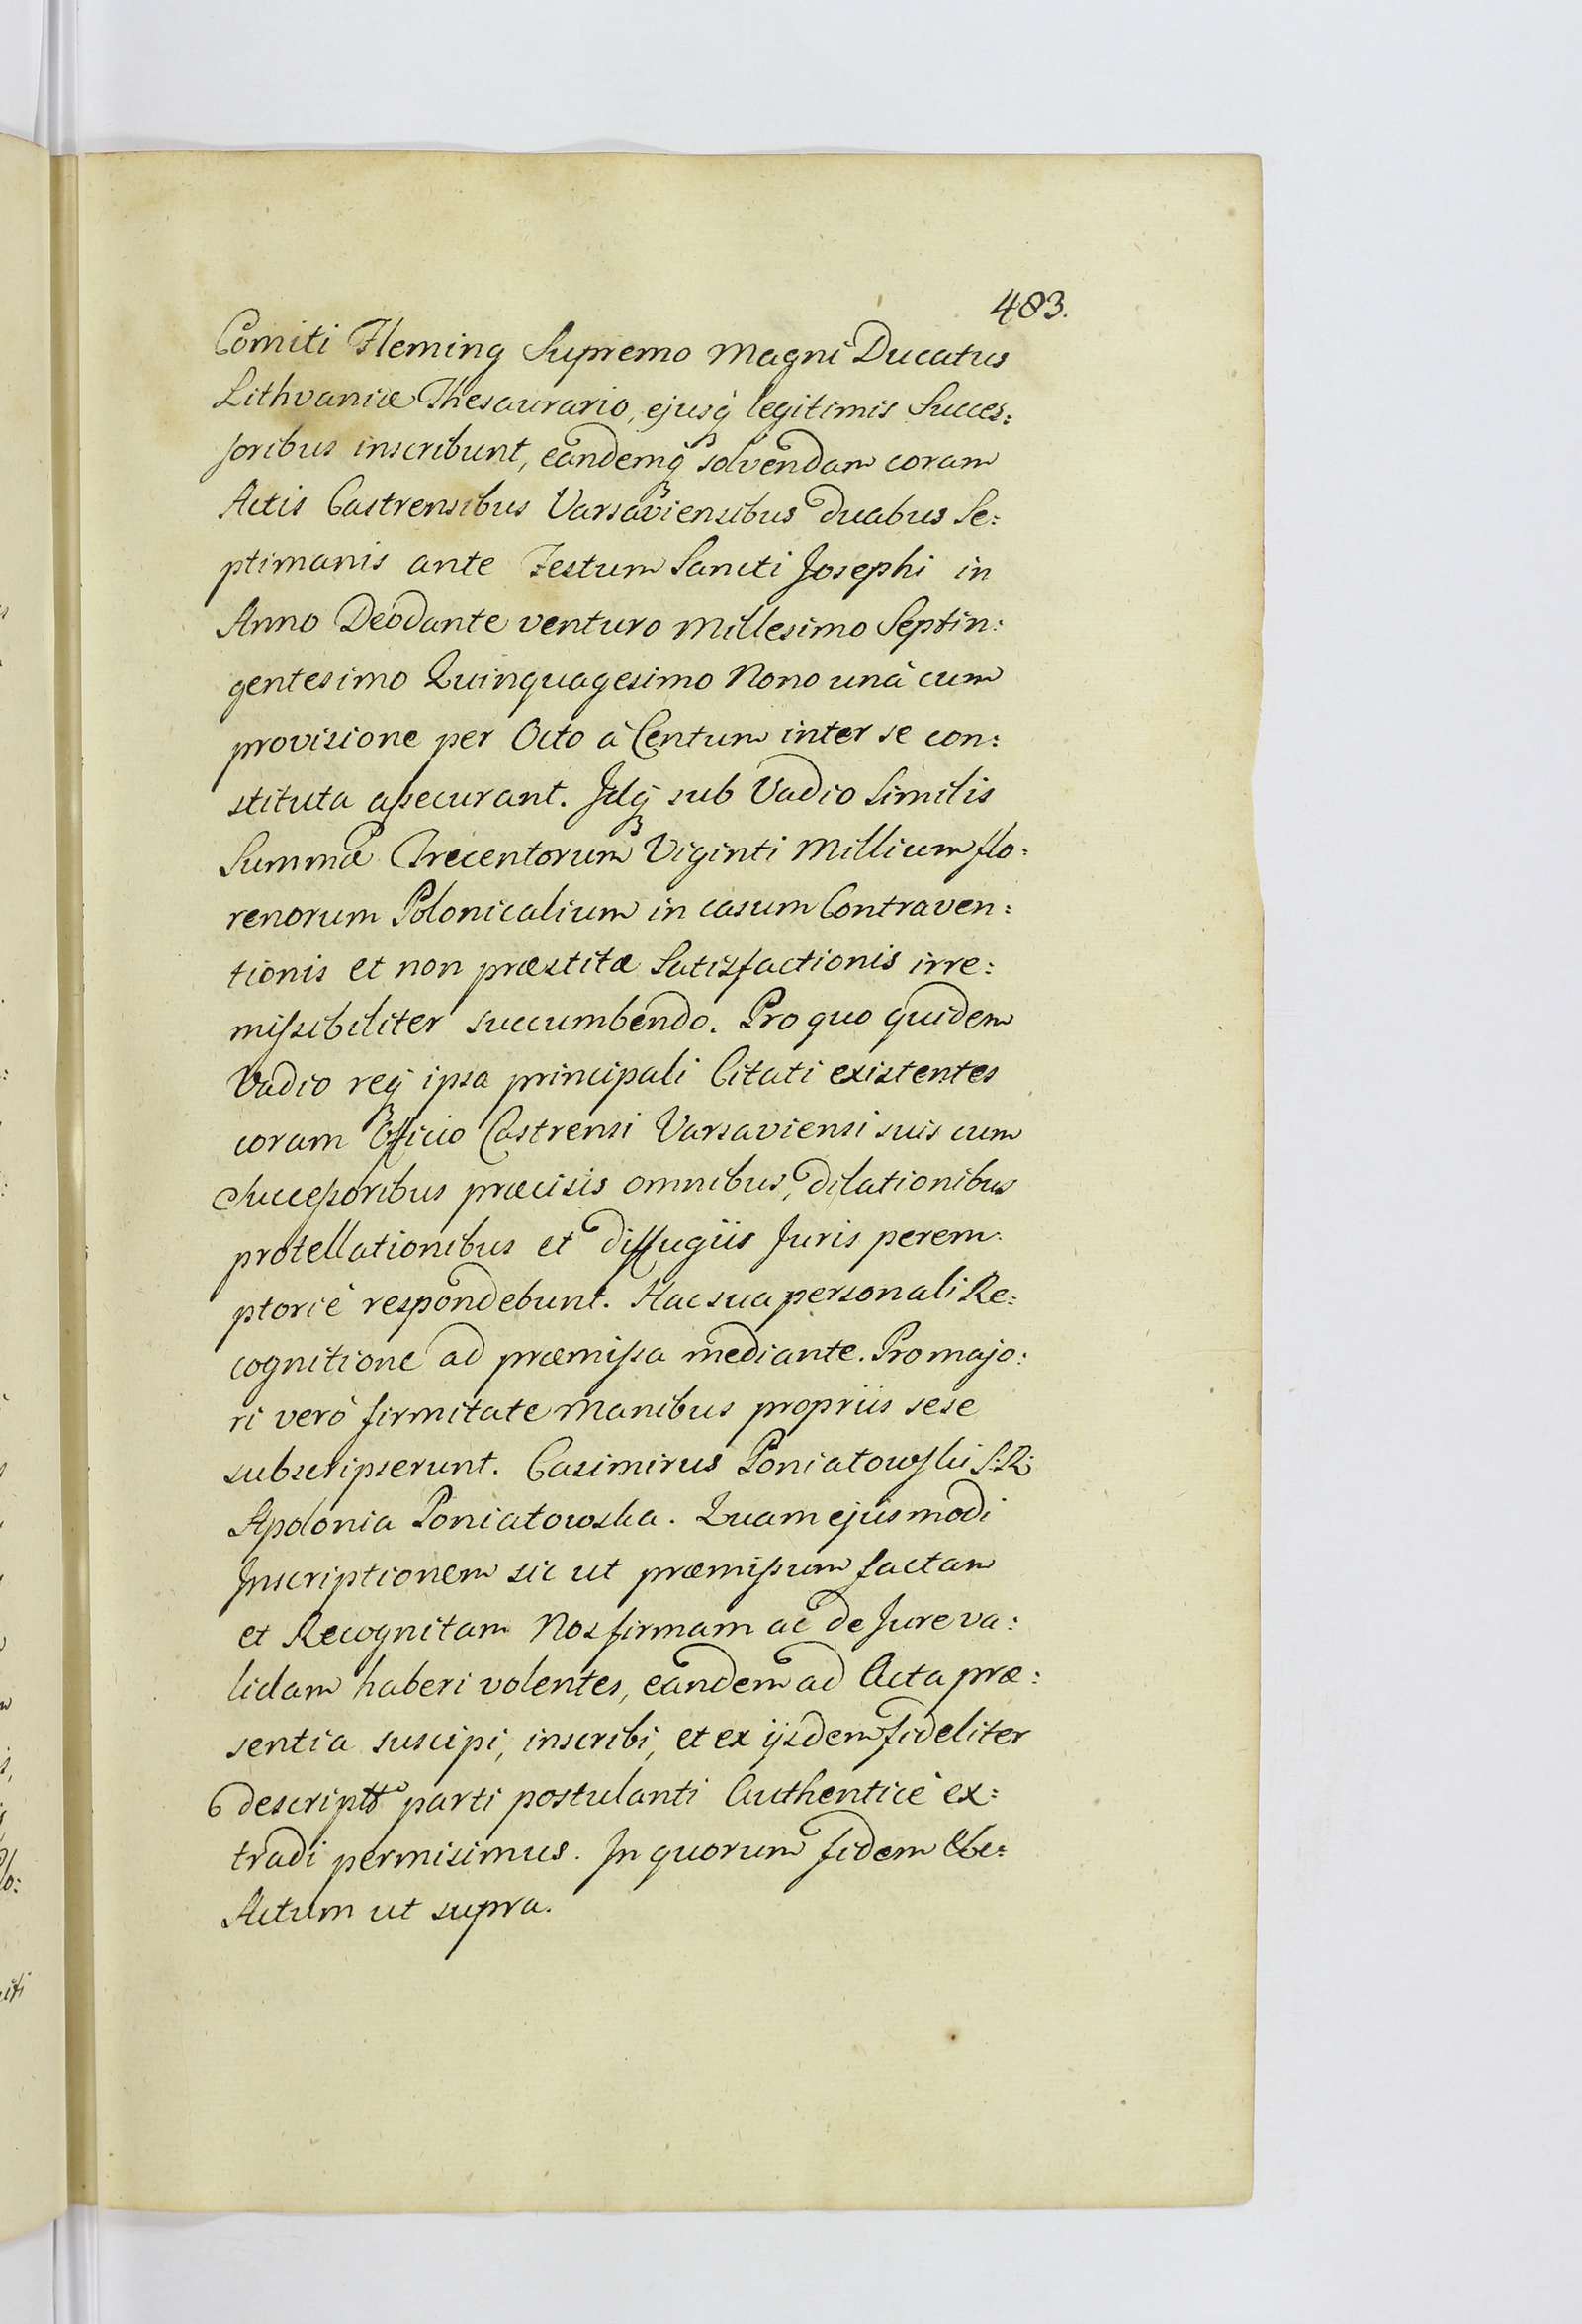 483.
Comiti Fleming Supremo Magni Ducatus
Lithvaniæ Thesaurario, ejusq́ legitimis Succes:
soribus inscribunt, eandemq́ solvendam coram
Actis Castrensibus Varsaviensibus duabus Se:
ptimanis ante Festum Sancti Josephi in
Anno Deodante venturo Millesimo Septin:
gentesimo Quinquagesimo Nono unà cum
provisione per Octo à Centum inter se con:
stituta assecurant. Idq́ sub Vadio Similis
Summæ Trecentorum Viginti Millium flo:
renorum Polonicalium in casum Contraven:
tionis et non præstitæ Satisfactionis irre:
missibiliter succumbendo. Pro quo quidem
Vadio req́ ipsa principali Citati existentes
coram Officio Castrensi Varsaviensi suis cum
Successoribus præcisis omnibus, dilationibus
protellationibus et diffugiis Juris perem:
ptoriè respondebunt. Hac sua personali Re:
cognitione ad præmissa mediante. Pro majo:
ri verò firmitate Manibus propriis sese
subscripserunt. Casimirus Poniatowski S:R:
Apolonia Poniatowska. Quam ejusmodi
Inscriptionem sic ut præmissum factam
et Recognitam Nos firmam ac de Jure va:
lidam haberi volentes, eandem ad Acta præ:
sentia suscipi, inscribi, et ex ijsdem fideliter
descriptã parti postulanti Authenticè ex:
tradi permisimus. In quorum fidem &c:
Actum ut supra.